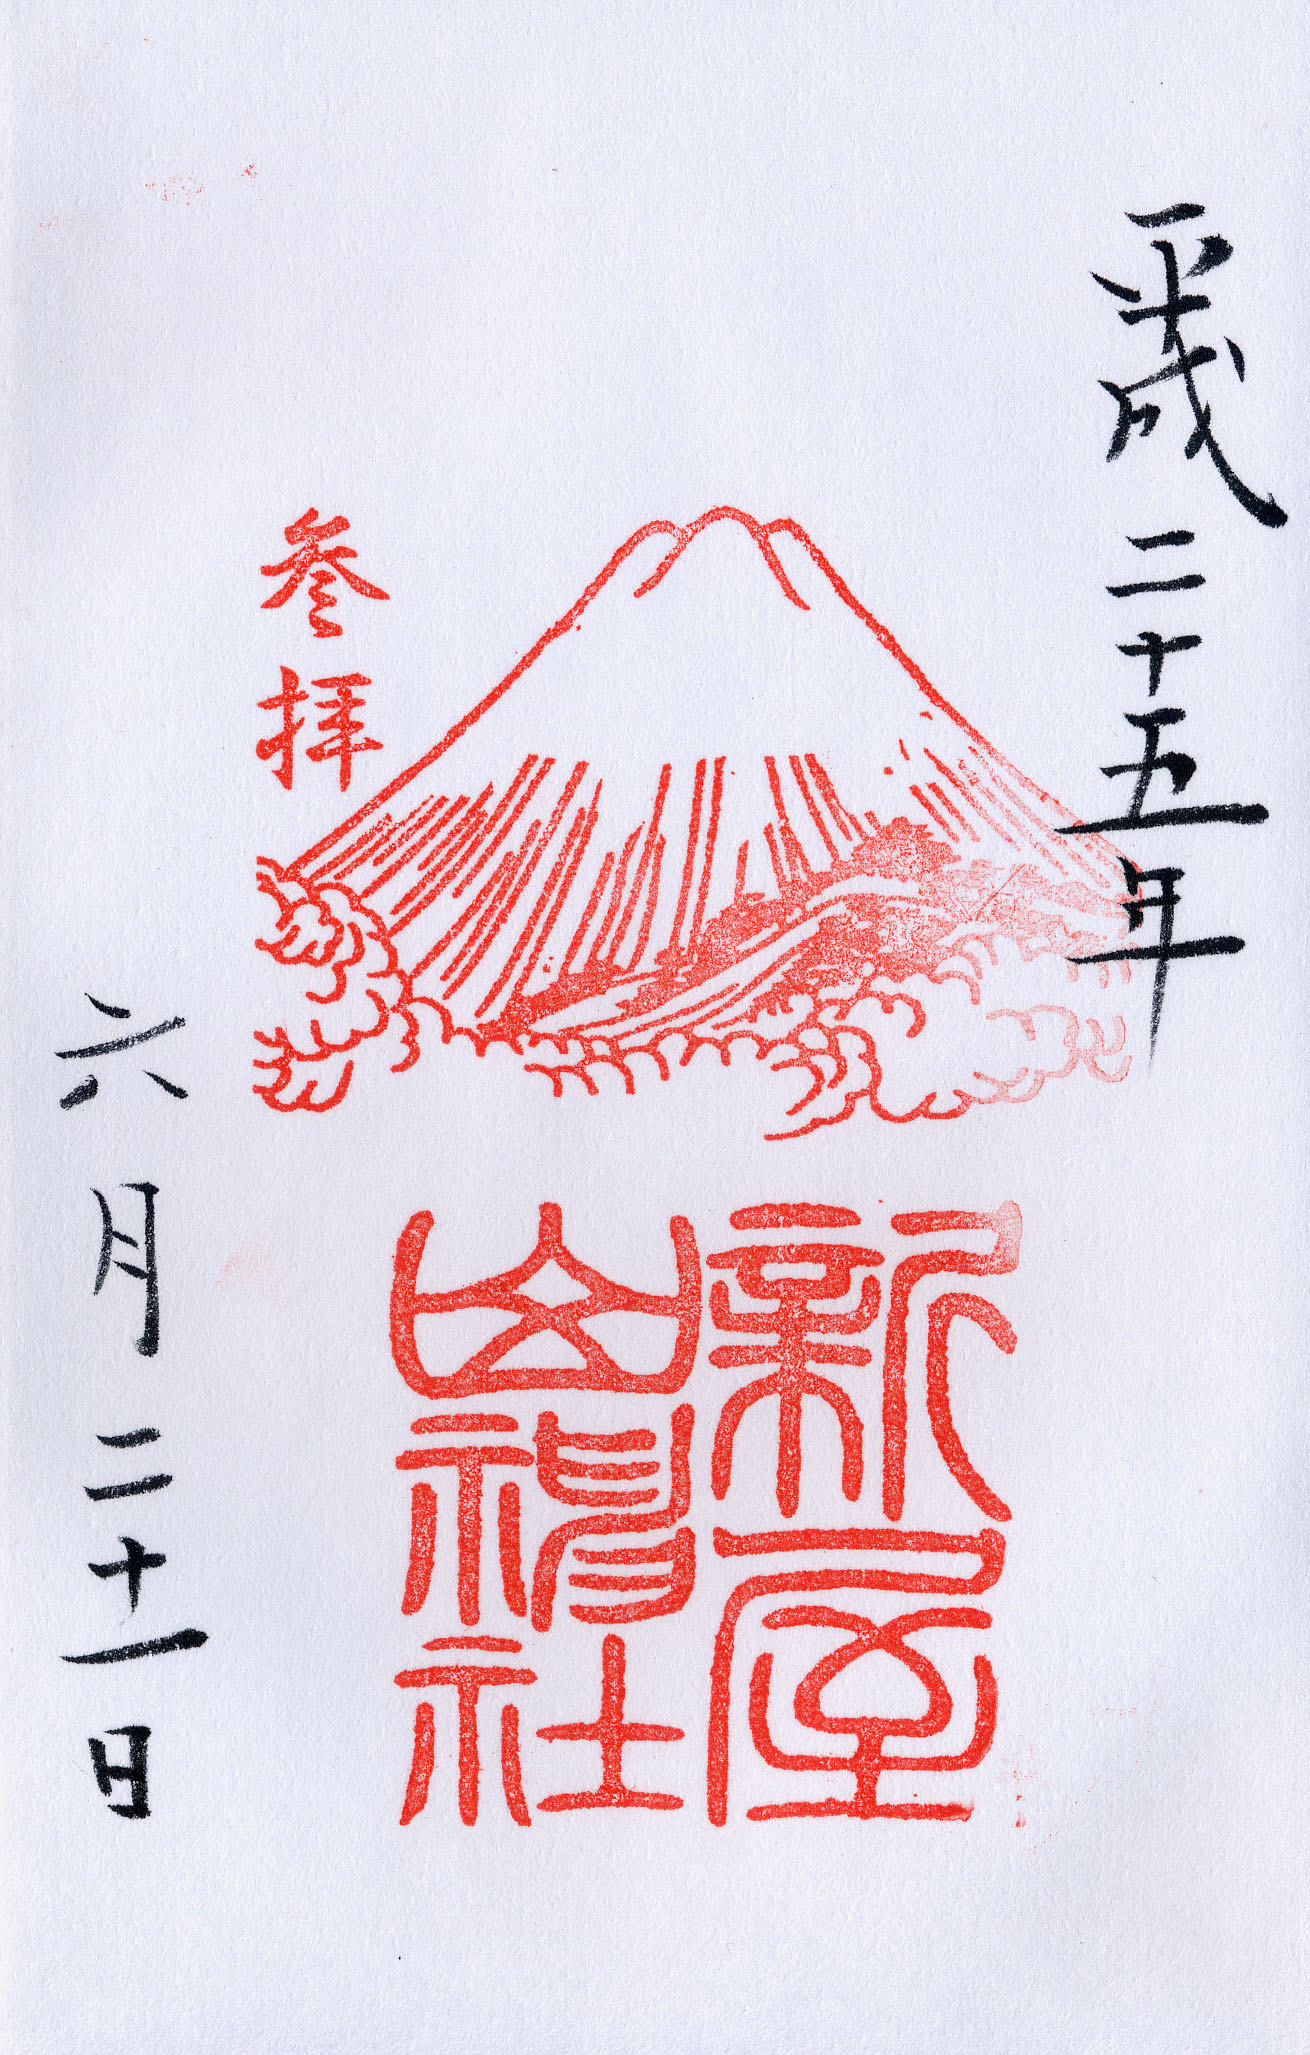 平成二十五年
新屋
山神社
参拝
六月二十一日